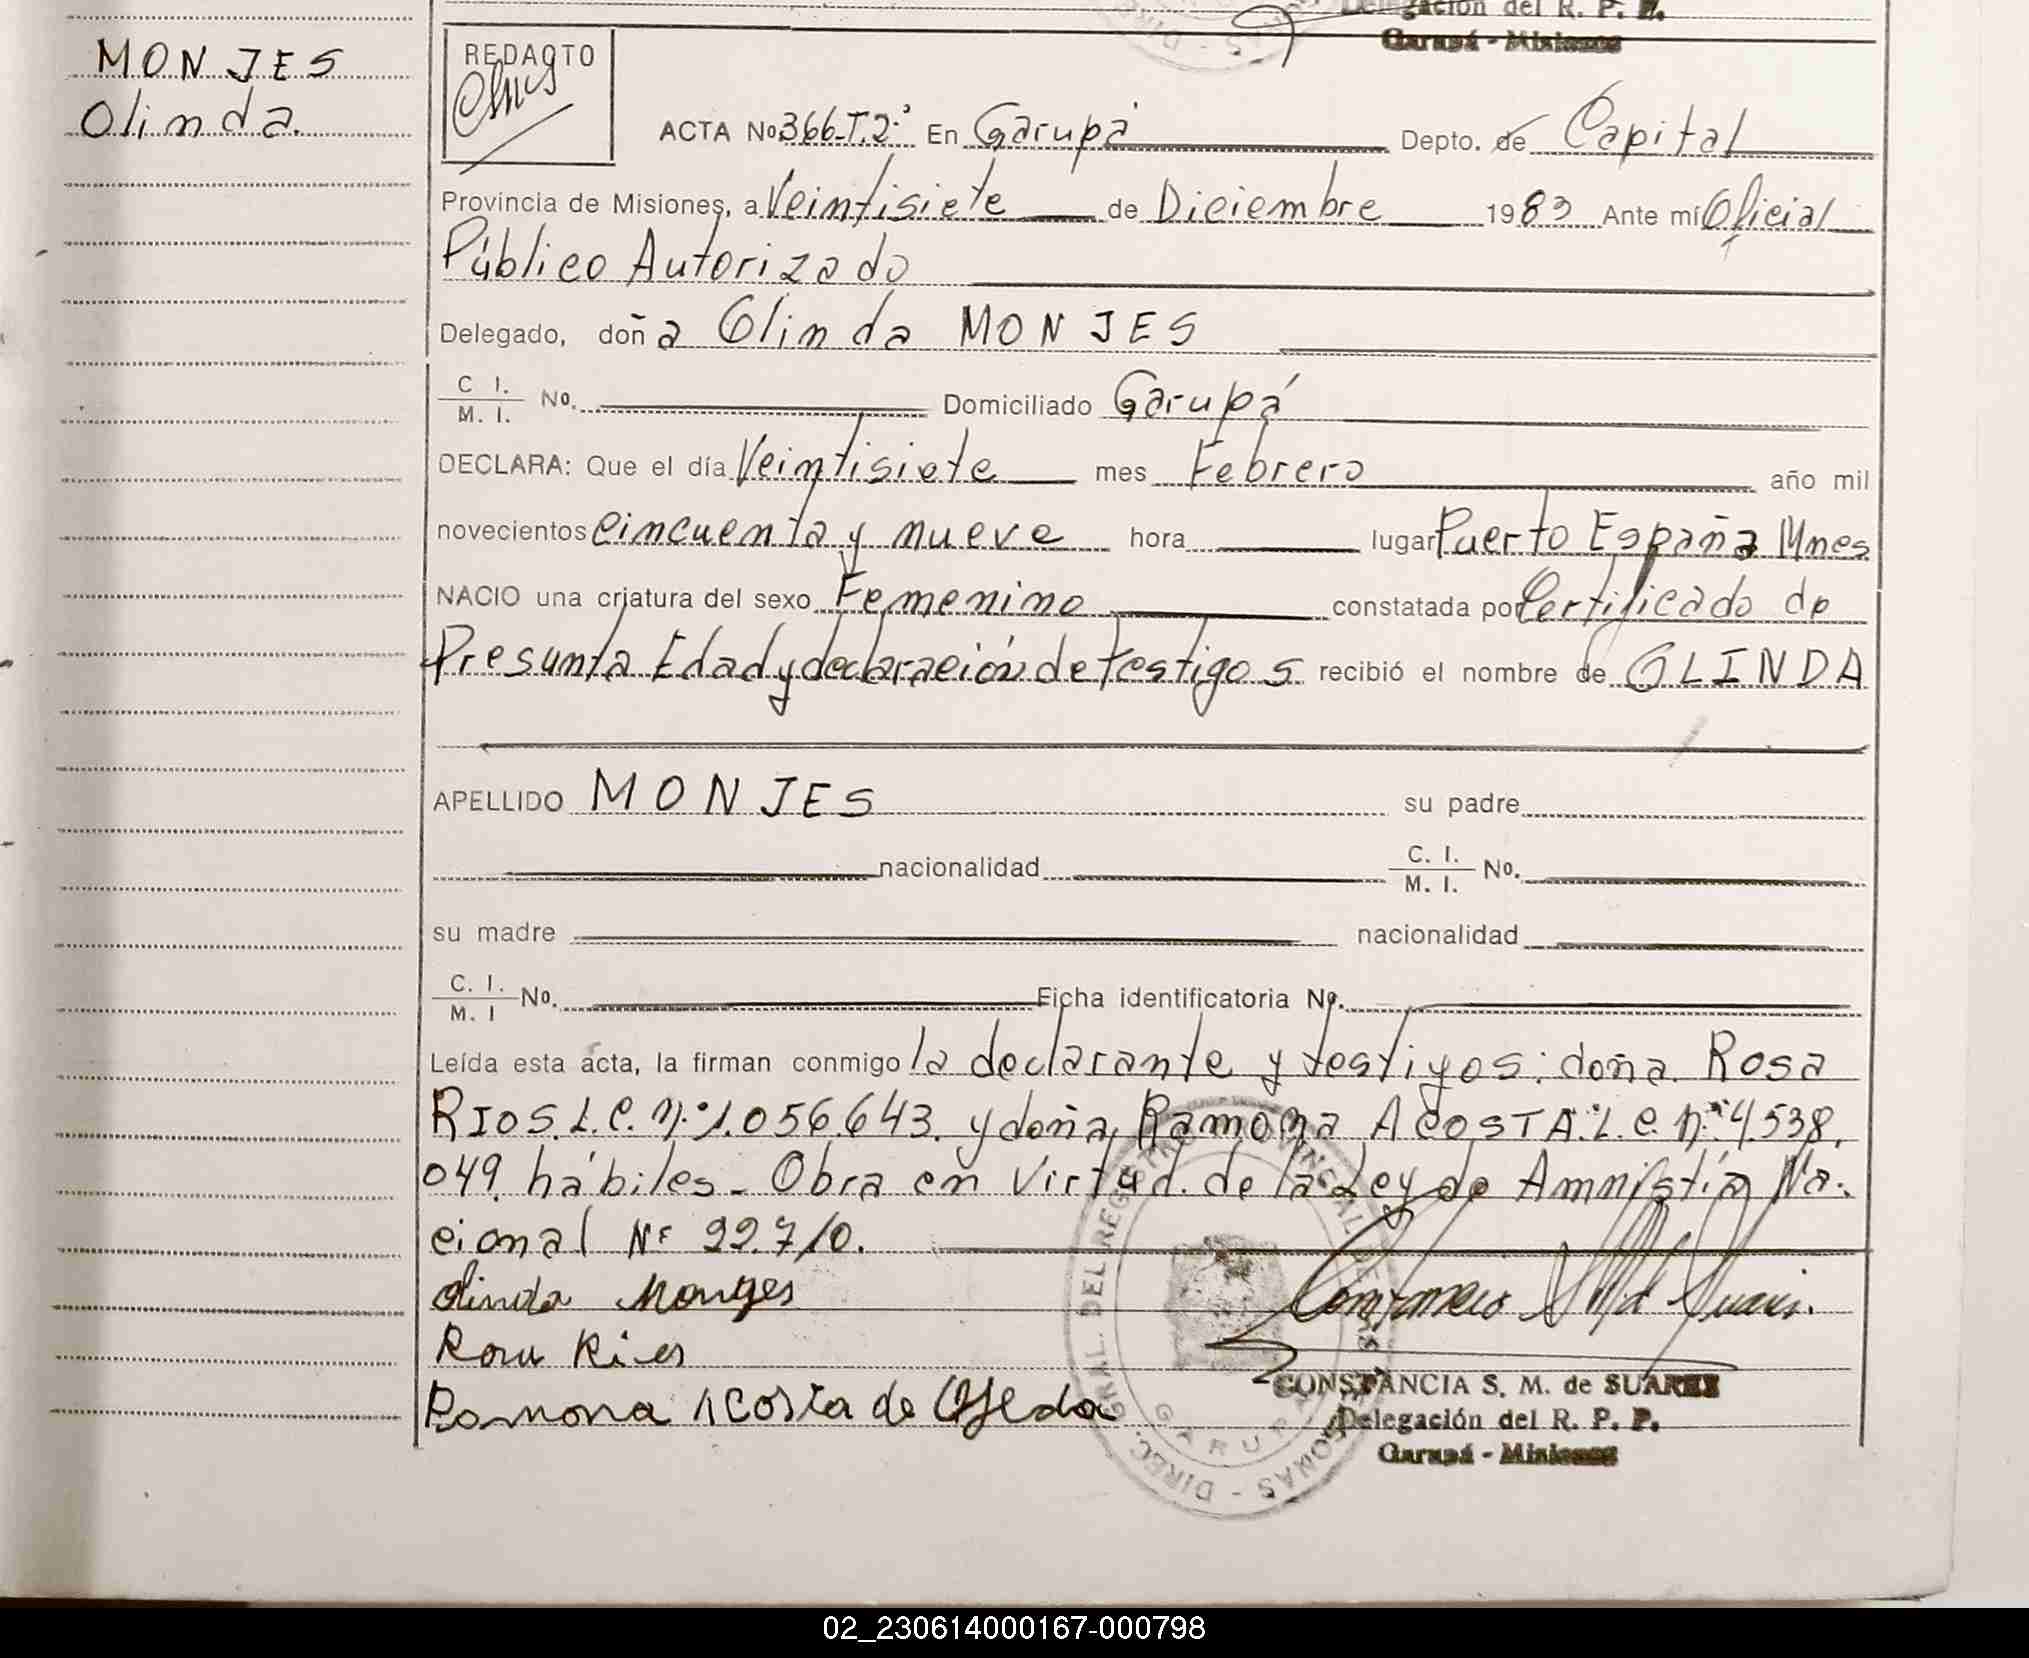 Delegación del R. P. P.
Garupá - Misiones
MONJES
Olinda.
REDACTO
ACTA No 366-T.2º En Garupá Depto. de Capital
Provincia de Misiones, a Veintisiete de Diciembre 1983 Ante mí Oficial
Público Autorizado
Delegado, doña Olinda MONJES
C I.
M. I. No. Domiciliado Garupá
DECLARA: Que el día Veintisiete mes Febrero año mil
novecientos cincuenta y nueve hora lugar Puerto España Mnes.
NACIO una criatura del sexo Femenino constatada por Certificado de
Presunta Edad y declaración de testigos recibió el nombre de OLINDA
APELLIDO MONJES su padre
nacionalidad C. I.
M. I. No.
su madre nacionalidad
C. I.
M. I No. Ficha identificatoria No.
Leída esta acta, la firman conmigo la declarante y testigos: doña Rosa
RIOS. L.C. Nº 1.056.643. y doña Ramona ACOSTA. L.C. Nº 4.538.
049. hábiles - Obra en Virtud de la Ley de Amnistía Na-
cional Nº 22.710.
Olinda Monges
Rosa Rios
Ramona Acosta de Ojeda
DIREC. GRAL. DEL REGISTRO PROVINCIAL DE LAS PERSONAS - GARUPA
CONSTANCIA S. M. de SUAREZ
Delegación del R. P. P.
Garupá - Misiones
02_230614000167-000798